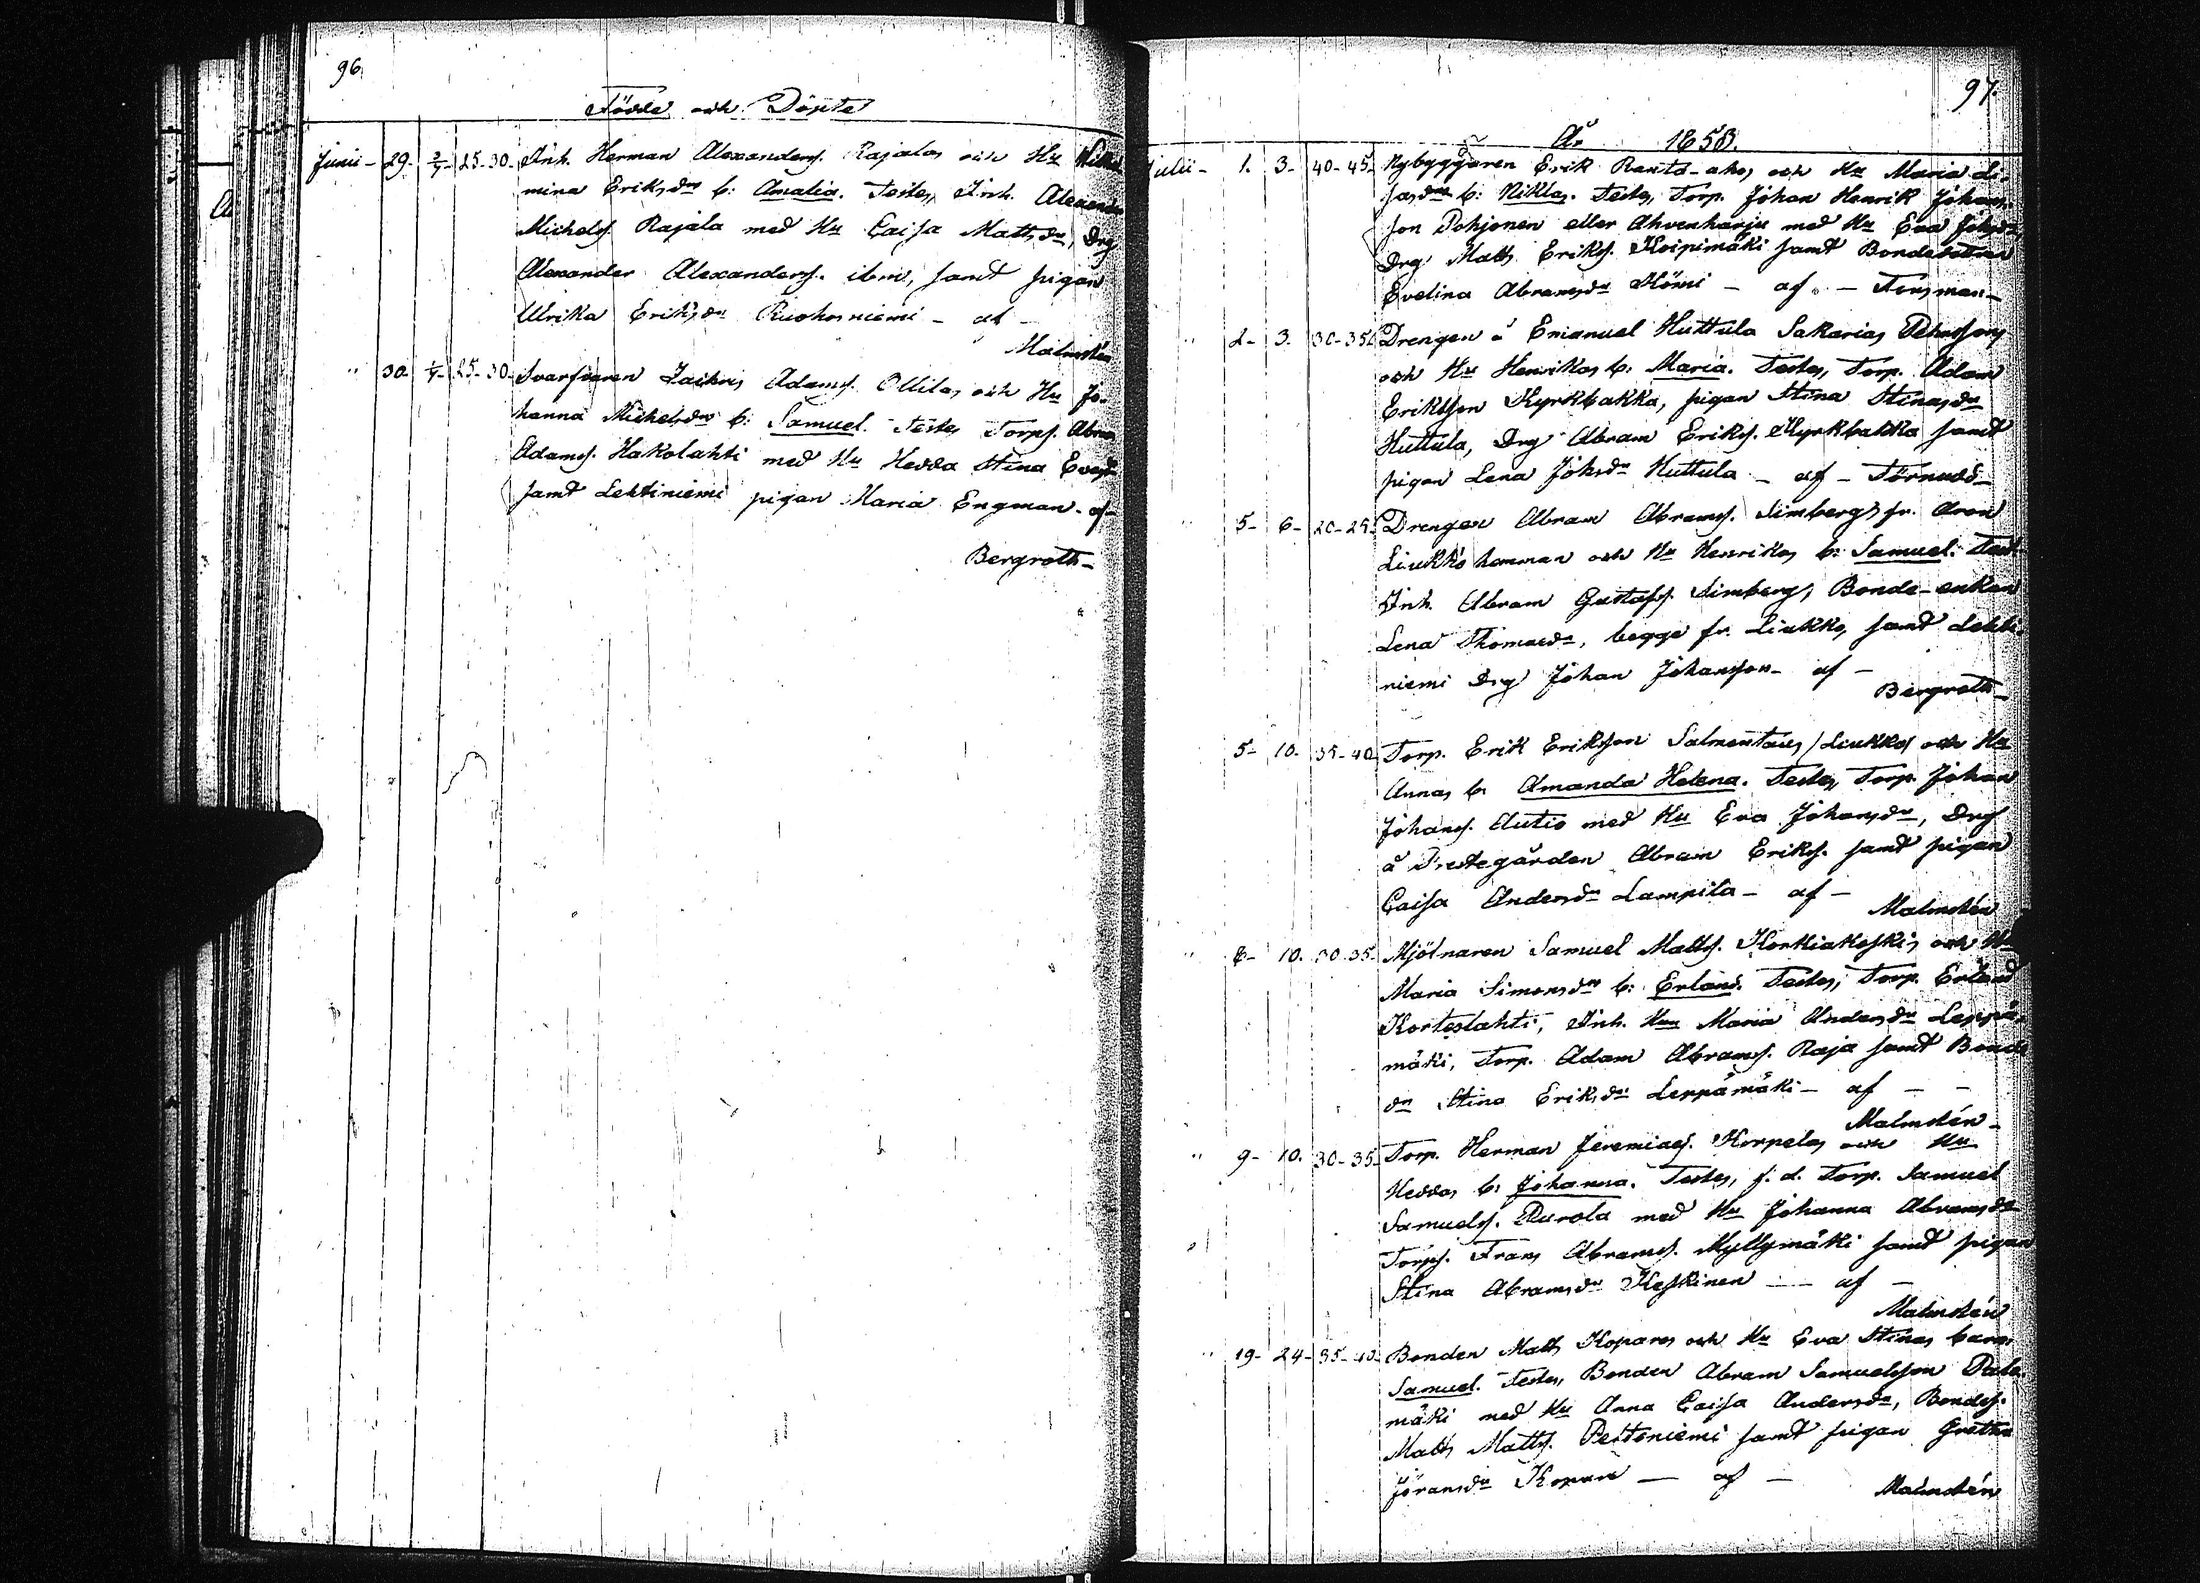 96.
Födde och Döpte
Junii - 29. 2/7 - 25-30. Inh. Herman Alexanders. Rajalas och Hu Wilhel
mina Eriksdrs b: Amalia. Testes, Inh. Alexander
Michelss. Rajala med Hu Caisa Mattsdr, Drg
Alexander Alexanderss. ibm, samt pigan
Ulrika Eriksdr Ruohoniemi - af -
Malmstén
" 30. 4/7 - 25-30. Svarfvaren Zachris Adamss. Ollilas och Hu Jo-
hanna Michelsdrs b: Samuel. Testes Torps. Abra
Adamss. Hakolahti med Hu Hedda Stina Evasdr
samt Lehtiniemi pigan Maria Engman - af -
Bergroth -
97.
År 1858.
Julii - 1. 3. 40-45. Nybyggaren Erik Ranto-ahos och Hu Maria Li-
sasdrs b: Niklas. Testes, Torp. Johan Henrik Johans-
son Pohjonen eller Ahvenharju med Hu Eva Johsdr
Drg Matts Erikss. Koipimäki samt Bondedottren
Evelina Abramsdr Hömi - af - Forsman -
" 2. 3. 30-35. Drengen å Emanuel Huttula Sakarias Pehrssons
och Hu Henrikas b: Maria. Testes, Torp. Adam
Eriksson Kyrkbakka, pigan Stina Stinasdr
Huttula, Drg Abram Erikss. Kyrkbakka samt
pigan Lena Johsdr Huttula - af - Törnudd -
" 5. 6. 20-25. Drengen Abram Abramss. Simbergs fr. Aron
Liukko hemman och Hu Henrikas b: Samuel. Test
Inh. Abram Gustafss. Simberg, Bonde-enkan
Lena Thomasdr, begge fr. Liukko, samt Lehti-
niemi Drg Johan Johansson - af -
Bergroth -
5. 10. 35-40. Torp. Erik Eriksson Salmentaus / Liukko / och Hu
Annas b: Amanda Helena. Testes, Torp. Johan
Johanss. Autio med Hu Eva Johansdr, Drg
å Prestegården Abram Erikss. samt pigan
Caisa Andersdr Lampila - af -
Malmstén
" 8. 10. 30-35. Mjölnaren Samuel Mattss. Korkiakoskis och Hu
Maria Simonsdrs b: Erland. Testes, Torp. Erland
Korteslahti, Inh. Hu Maria Andersdr Leppä-
mäki, Torp. Adam Abramss. Raja samt Bonde
dr Stina Eriksdr Leppämäki - af - -
Malmstén -
" 9. 10. 30-35. Torp. Herman Jeremiass. Korpelas och Hu
Heddas b: Johanna. Testes, f. d. Torp. Samuel
Samuelss. Purola med Hu Johanna Abramsdr
Torps. Frans Abramss. Myllymäki samt pigan
Stina Abramsdr Keskinen - af -
Malmstén
" 19. 24. 35-40. Bonden Matts Kopares och Hu Eva Stinas barn
Samuel. Testes, Bonden Abram Samuelsson Palo
mäki med Hu Anna Caisa Andersdr, Bondes.
Matts Mattss. Pertoniemi samt pigan Gretha
Jöransdr Kopare - af -
Malmstén